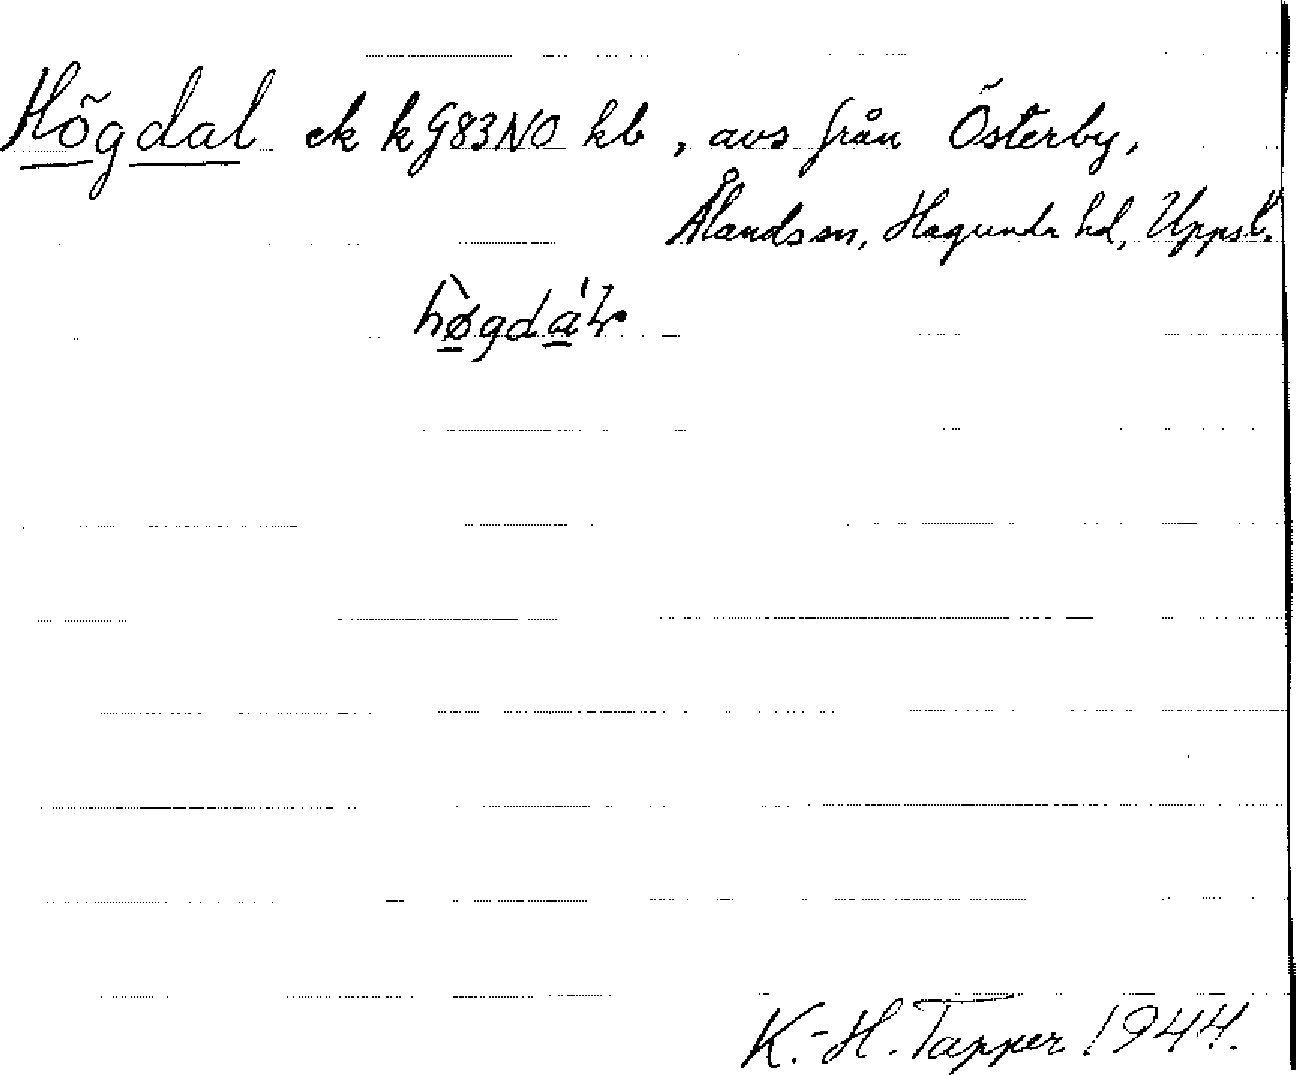 Högdal ek kG83NO kb, avs från Österby,
Ålands sn, Hagunda hd, Uppsl.
hø̀gdá
K.-H. Tapper 1944.